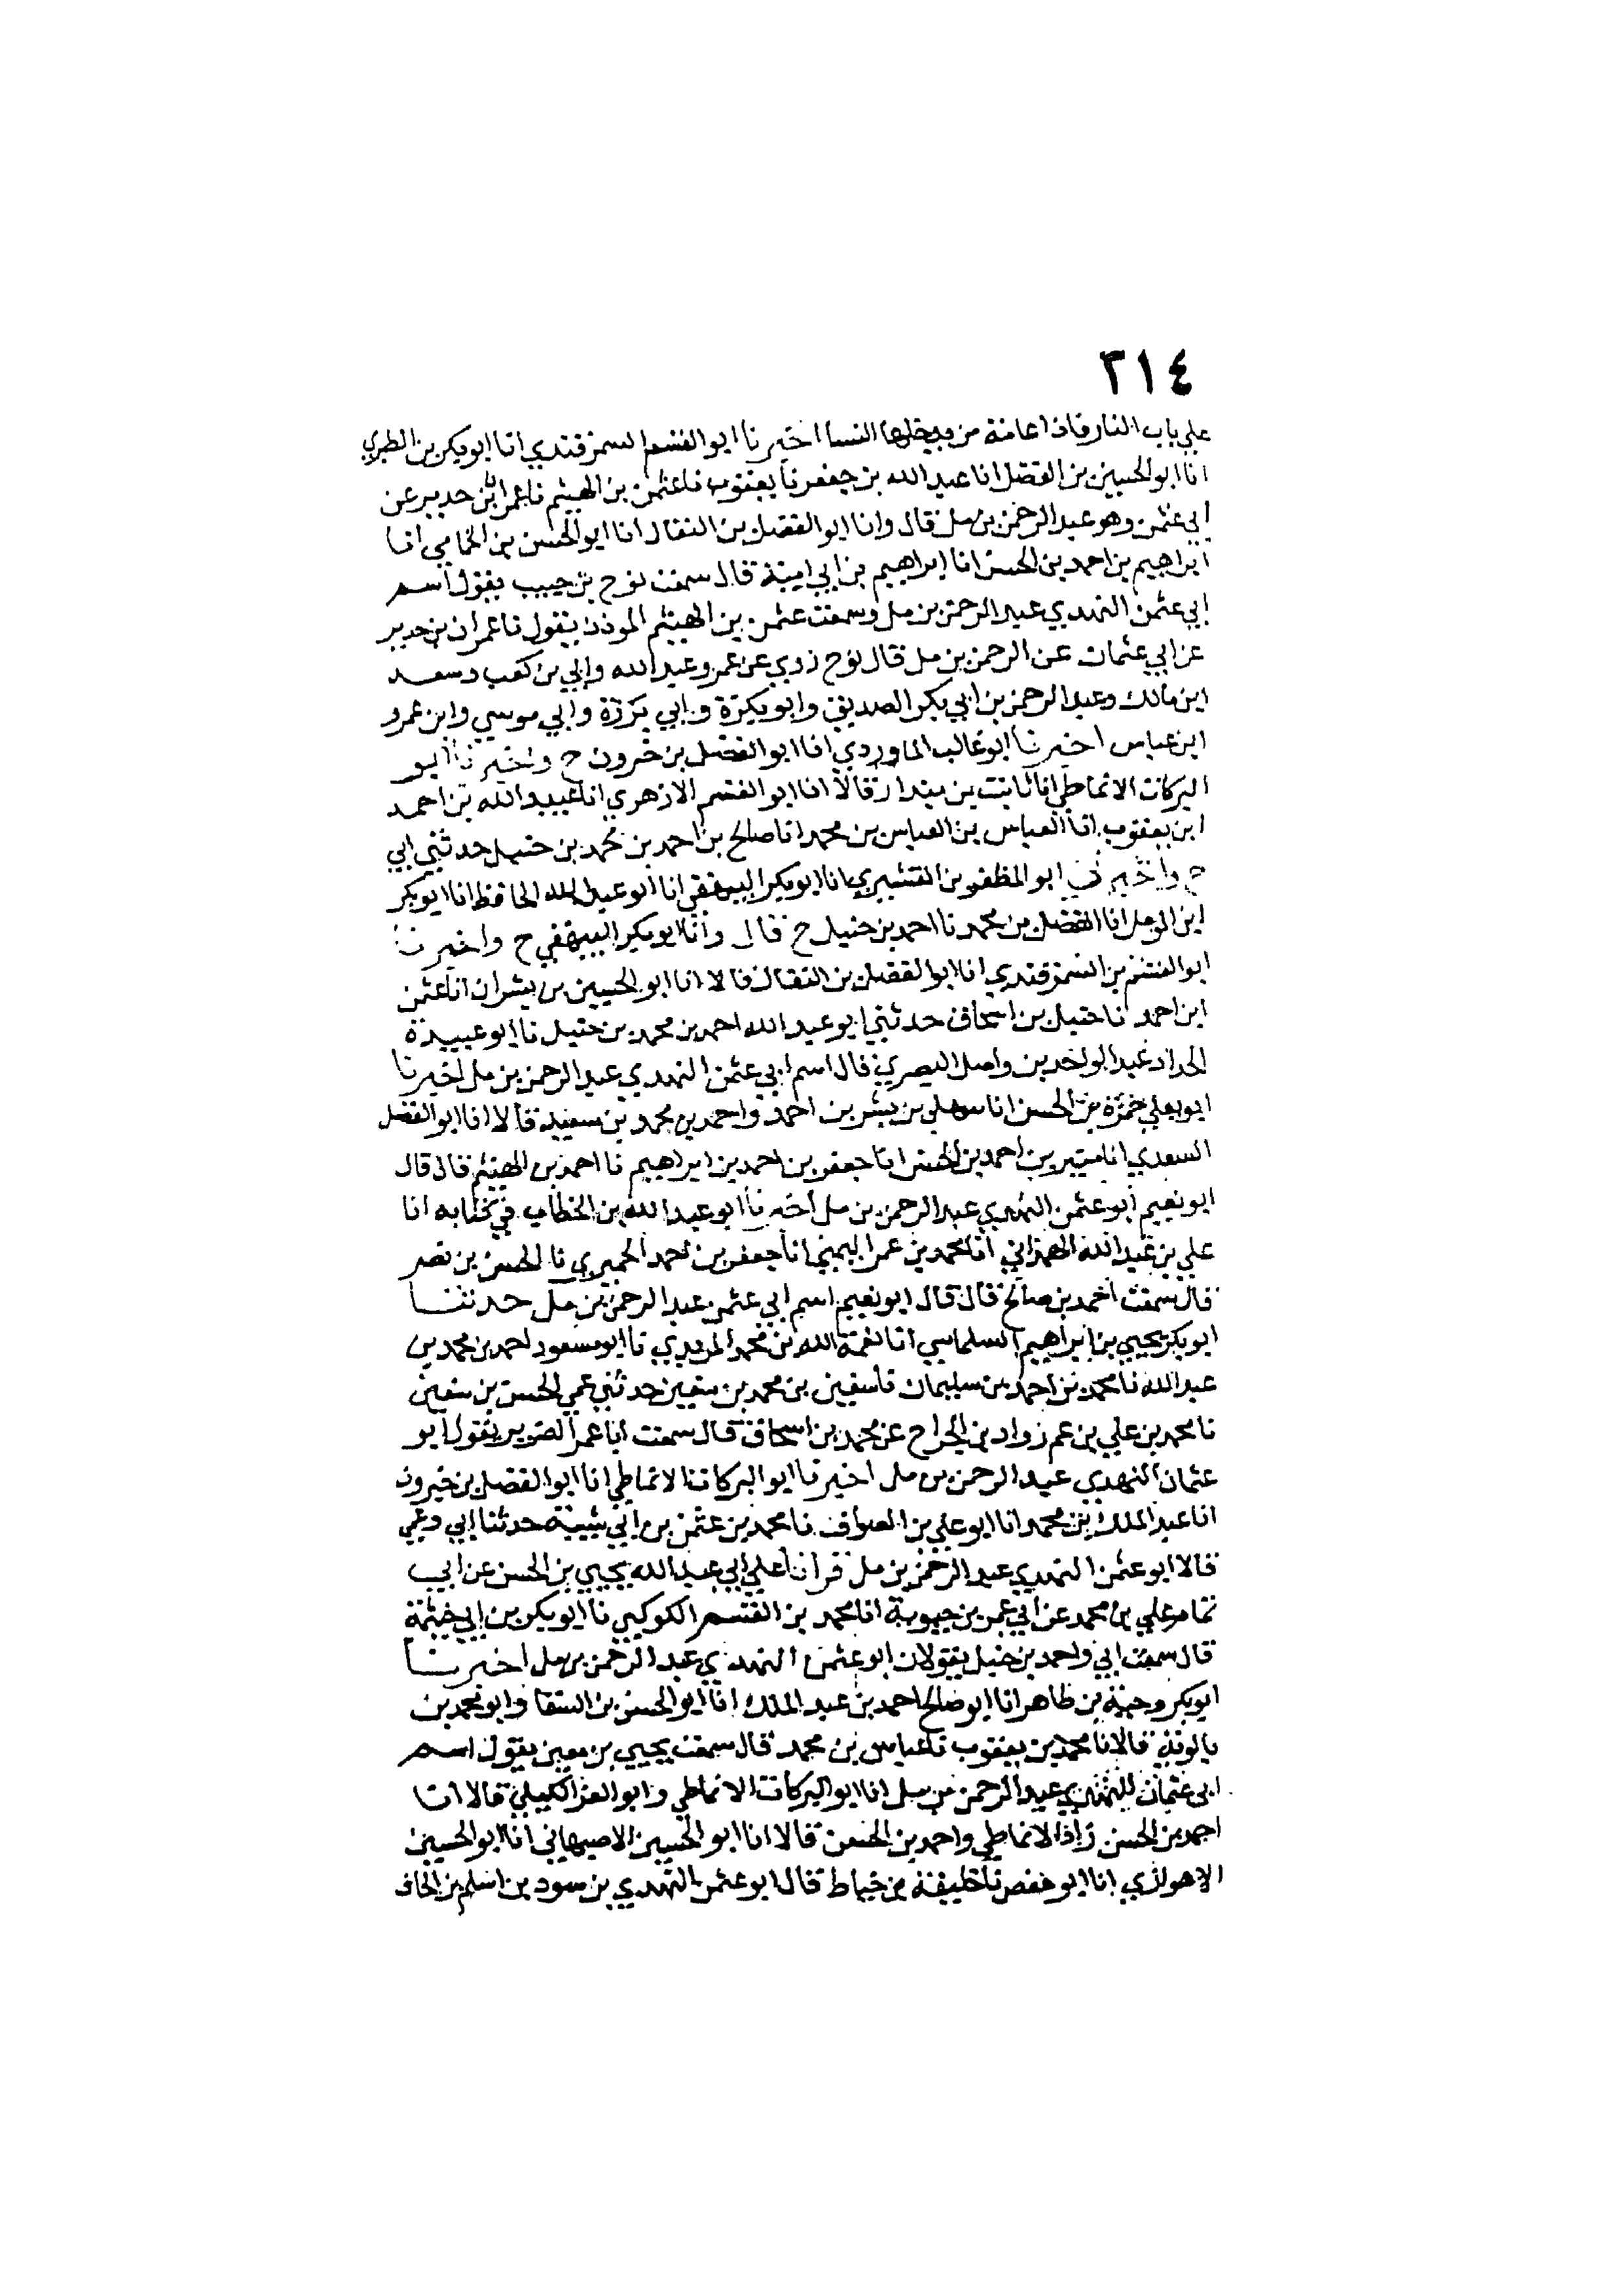 ٣١٤
علي باب النار فاذا عامة من يدخلها النسا اخبرنا ابو القسم السمرقندي انا ابو بكر بن الطبري
انا ابو الحسين بن الفضل انا عبد الله بن جعفر نا يعقوب نا عثمن بن الهيثم نا عمران بن حدير عن
ابي عثمن وهو عبد الرحمن بن مل قال وانا ابو الفضل بن البقال انا ابو الحسن بن الحمامي انا
ابراهيم بن احمد بن الحسن انا ابراهيم بن ابي امية قال سمعت نوح بن حبيب يقول اسم
ابي عثمن النهدي عبد الرحمن بن مل وسمعت عثمن بن الهيثم الموذن يقول نا عمران بن حدير
عن ابي عثمان عن الرحمن بن مل قال نوح روي عن عمر وعبد الله وابي بن كعب وسعد
ابن مالك وعبد الرحمن بن ابي بكر الصديق وابو بكرة وابي برزة وابي موسي وابن عمرو
ابن عباس اخبرنا ابو غالب الماوردي انا ابو الفضل بن خيرون ح واخبرنا ابو
البركات الانماطي انا ثابت بن بندار قالا انا ابو القسم الازهري انا عبيد الله بن احمد
ابن يعقوب انا العباس بن العباس بن محمد انا صالح بن احمد بن محمد بن حنبل حدثني ابي
ح واخبرني ابو المظفر بن القشيري انا ابو بكر البيهقي انا ابو عبد الله الحافظ انا ابو بكر
ابن المومل انا الفضل بن محمد نا احمد بن حنبل ح قال وانا ابو بكر البيهقي ح واخبرنا
ابو القسم بن السمرقندي انا ابو الفضل بن البقال قالا انا ابو الحسين بن بشران انا عثمن
ابن احمد نا حنبل بن اسحاق حدثني ابو عبد الله احمد بن محمد بن حنبل نا ابو عبيدة
الحداد عبد الواحد بن واصل البصري قال اسم ابي عثمن النهدي عبد الرحمن بن مل اخبرنا
ابو يعلي حمزة بن الحسن انا سهل بن بشر بن احمد واحمد بن محمد بن سعيد قالا انا ابو الفضل
السعدي انا منير بن احمد بن الحسن انا جعفر بن احمد بن ابراهيم نا احمد بن الهيثم قال قال
ابو نعيم ابو عثمن النهدي عبد الرحمن بن مل اخبرنا ابو عبد الله بن الخطاب في كتابه انا
علي بن عبيد الله الهمذاني انا محمد بن عمر اليمني انا جعفر بن احمد الحميري نا الحسن بن نصر
قال سمعت احمد بن صالح قال قال ابو نعيم اسم ابي عثمن عبد الرحمن بن مل حدثنا
ابو بكر يحيي بن ابراهيم السلماسي انا نعمة الله بن محمد المرندي نا ابو مسعود احمد بن محمد بن
عبد الله نا محمد بن احمد بن سليمان نا سفين بن محمد بن سفين حدثني عمي الحسن بن سفين
نا محمد بن علي بن عم رواد بن الجراح عن محمد بن اسحاق قال سمعت ابا عمر الضرير يقول ابو
عثمان النهدي عبد الرحمن بن مل اخبرنا ابو البركات الانماطي انا ابو الفضل بن خيرون
انا عبد الملك بن محمد انا ابو علي بن الصواف نا محمد بن عثمن بن ابي شيبة حدثنا ابي وعمي
قالا ابو عثمن النهدي عبد الرحمن بن مل قرانا علي ابي عبد الله يحيي بن الحسن عن ابي
تمام علي بن محمد عن ابي عمر بن حيوية انا محمد بن القسم الكوكبي نا ابو بكر بن ابي خيثمة
قال سمعت ابي واحمد بن حنبل يقولان ابو عثمن النهدي عبد الرحمن بن مل اخبرنا
ابو بكر وجيه بن طاهر انا ابو صالح احمد بن عبد الملك انا ابو الحسن بن السقا وابو محمد بن
بالوية قالا نا محمد بن يعقوب نا عباس بن محمد قال سمعت يحيي بن معين يقول اسم
ابي عثمان النهدي عبد الرحمن بن مل انا ابو البركات الانماطي وابو العز الكيلي قالا انا
احمد بن الحسن زاد الانماطي واحمد بن الحسن قالا انا ابو الحسين الاصبهاني انا ابو الحسين
الاهوازي انا ابو حفص نا خليفة بن خياط قال ابو عثمن النهدي بن سود بن اسلم بن الحاف